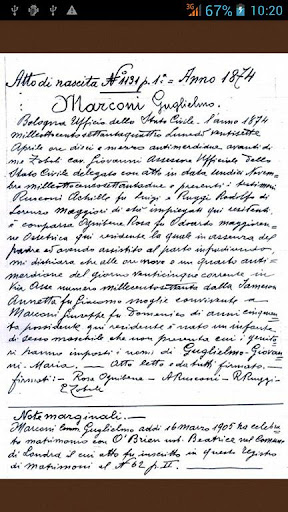 3G 67% 10:20
Atto di nascita N° 1131 p. 1ª = Anno 1874
Marconi Guglielmo.
Bologna Ufficio dello Stato Civile. L'anno 1874
milleottocentosettantaquattro Lunedì ventisette
Aprile ore dieci e mezzo antimeridiane avanti di
me Zoboli cav. Giovanni Assessore Ufficiale dello
Stato Civile delegato con atto in data undici Novem-
bre milleottocentosettantadue e presenti i testimoni
Rusconi Achille fu Luigi e Ruggi Rodolfo di
Lorenzo Maggiori di età impiegati qui residenti,
è comparsa Ognibene Rosa fu Edoardo maggioren-
ne Ostetrica qui residente la quale in assenza del
padre ed avendo assistito al parto infradicendo,
mi dichiara che alle ore nove e un quarto anti-
meridione del giorno venticinque corrente in
Via Asse numero millecentosettanta dalla Jameson
Annetta fu Giacomo moglie convivente a
Marconi Giuseppe fu Domenico di anni cinquan-
ta possidente qui residente è nato un infante
di sesso maschile che non presenta cui i genito-
ri hanno imposti i nomi di Guglielmo-Giovan-
ni-Maria. — Atto letto ed a tutti firmato. —
firmati: - Rosa Ognibene - A. Rusconi - R. Ruggi -
E Zoboli
Note marginali. —
Marconi Comm. Guglielmo addì 16 marzo 1905 ha celebra-
to matrimonio con O'Brien nob. Beatrice nel Comune
di Londra il cui atto fu inscritto in questo registro
di Matrimoni al N° 62 p. II.